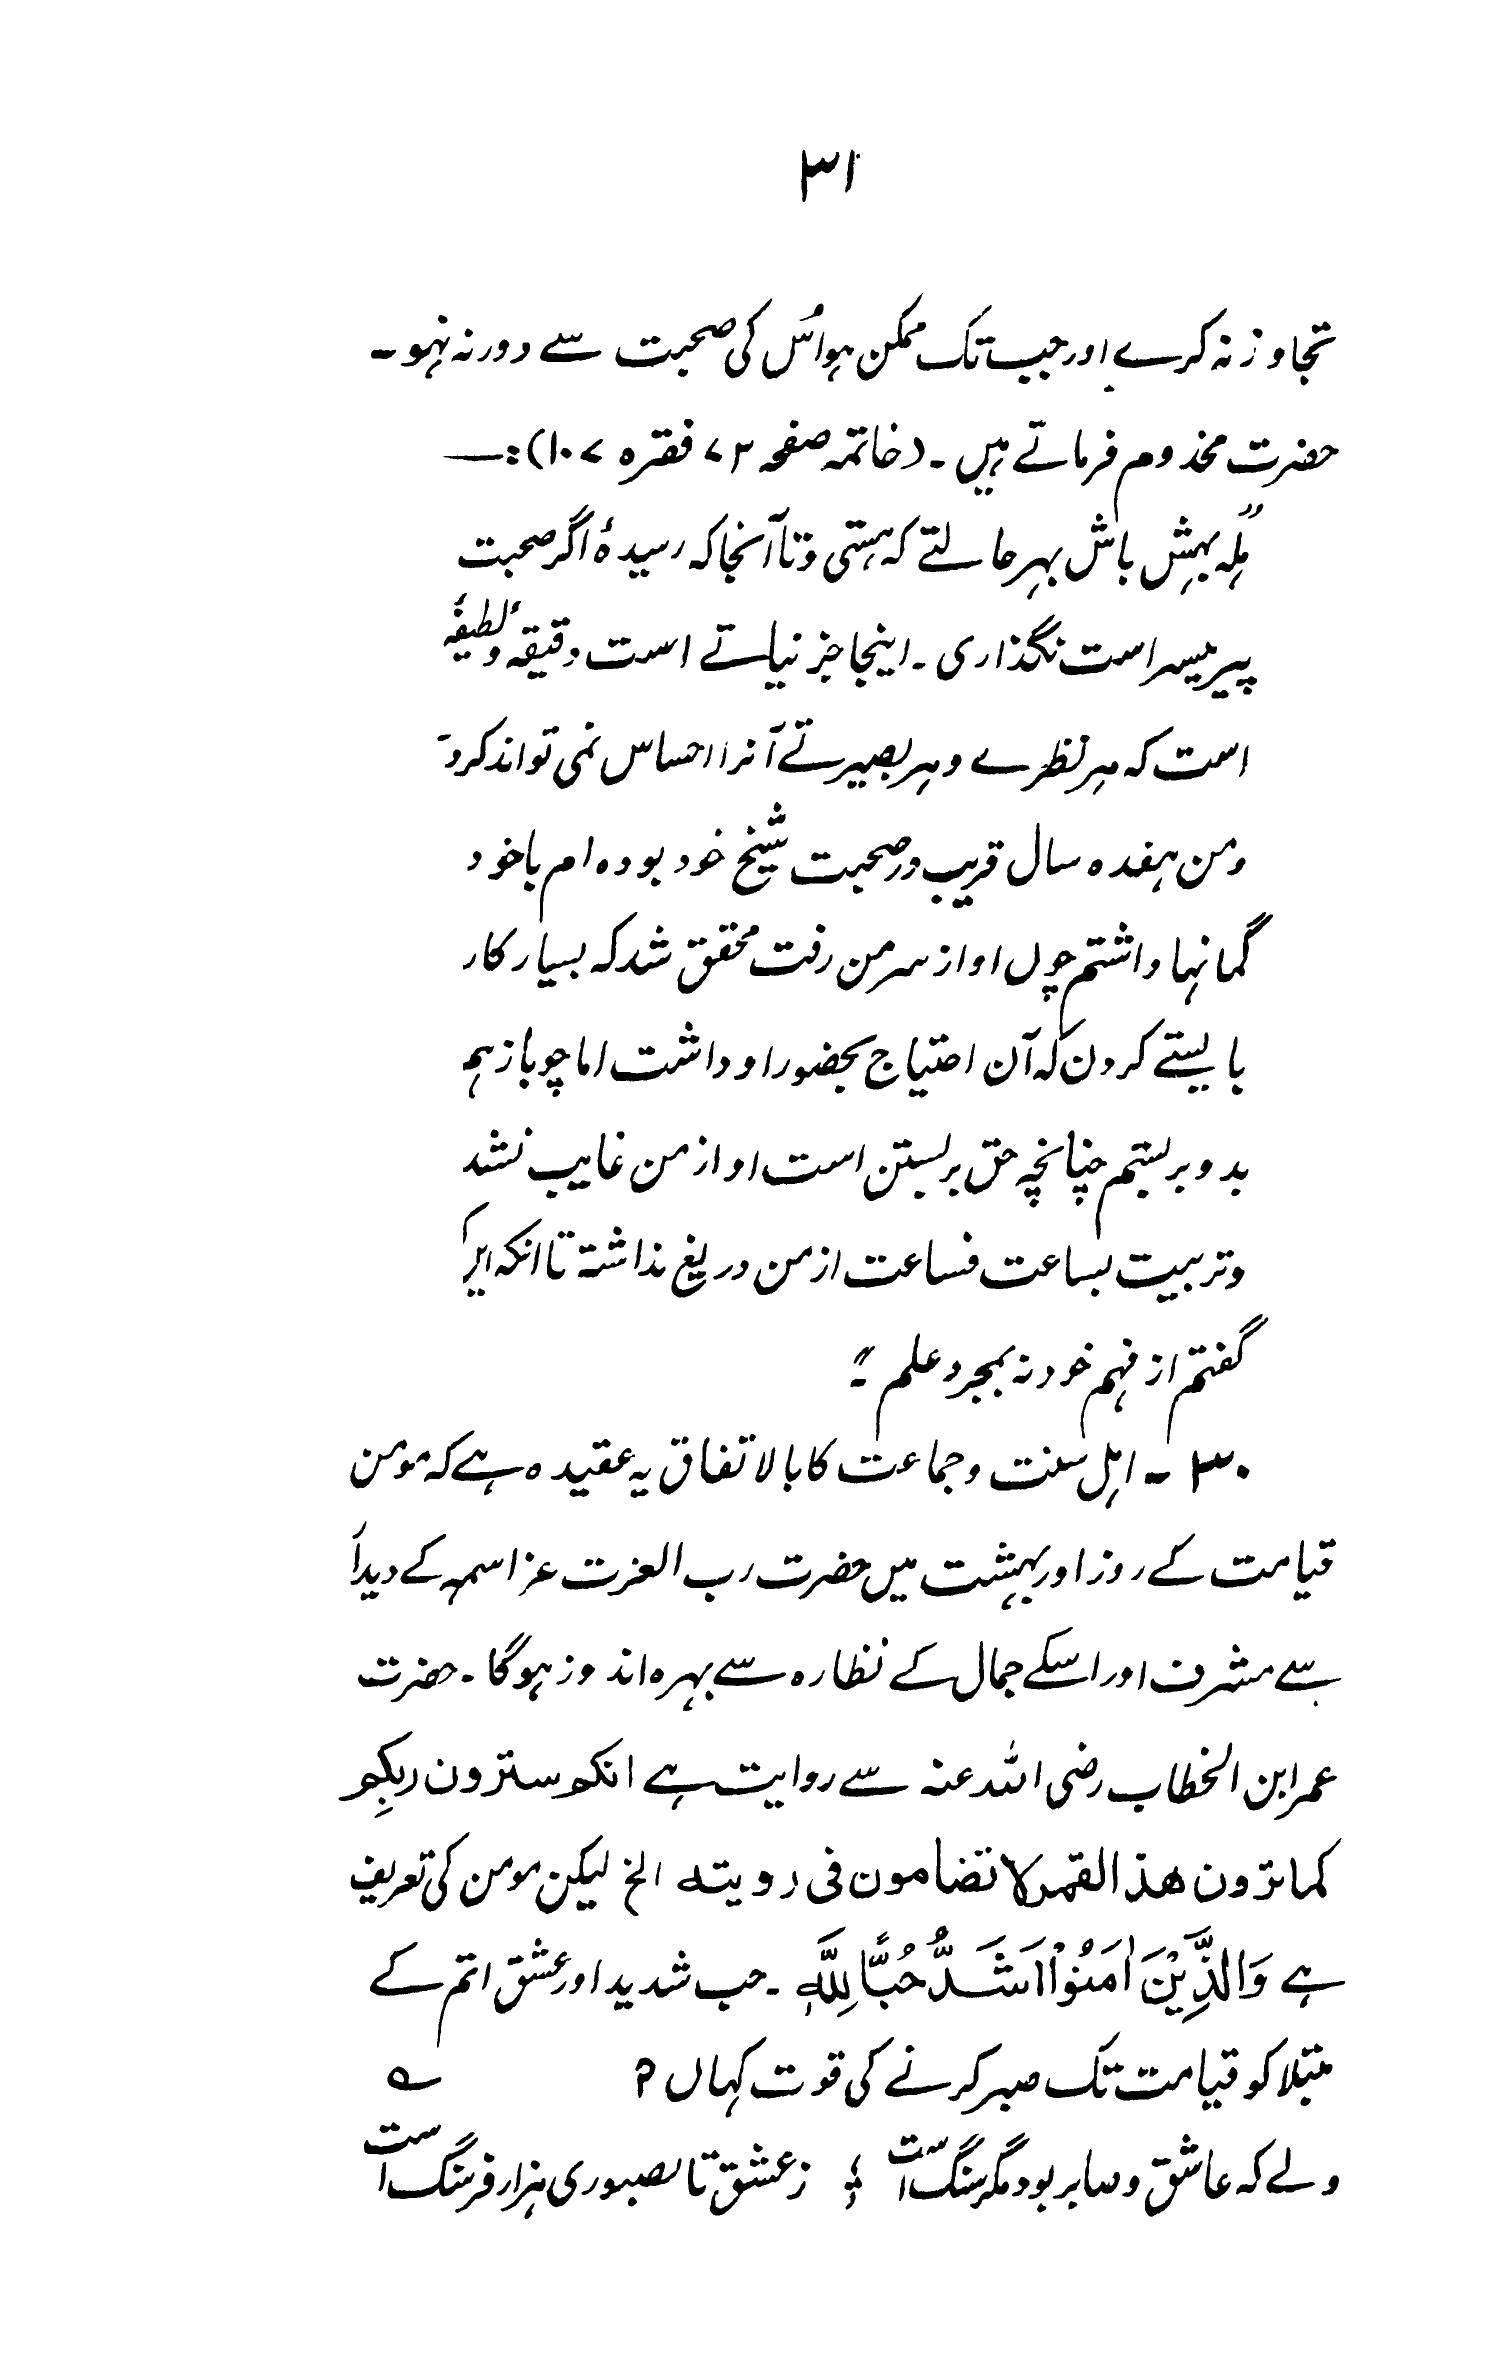 ۳۱
تجاوز نہ کرے اور جب تک ممکن ہو اُس کی صحبت سے دور نہ نہو ۔
حضرت مخدوم فرماتے ہیں ۔ (خاتمہ صفحہ ۷۲ فقرہ ۱۰۷) :—
"ہلہ بہش باش بہر حالتے کہ ہستی و تا آنجا کہ رسیدۂ اگر صحبت
پیر میسر است نگذاری ۔ اینجا جز نیاتے است دقیقہ و لطیفۂ
است کہ ہر نظرے و ہر بصیرتے آنرا احساس نمی تواند کرد ۔
و من ہفدہ سال قریب در صحبت شیخ خود بودہ ام با خود
گمانہا داشتم چوں او از سر من رفت محقق شد کہ بسیار کار
بایستے کردن کہ آن احتیاج بحضور او داشت اما چو باز ہم
بدو بربستم چنانچہ حق بربستن است او از من غایب نشد
و تربیت بساعت فساعت از من دریغ نداشتہ تا انکہ ایں
گفتم از فہم خود نہ بمجرد علم ۔"
۳۰ ۔ اہل سنت و جماعت کا بالاتفاق یہ عقیدہ ہے کہ مومن
قیامت کے روز اور بہشت میں حضرت رب العزت عز اسمہ کے دیدار
سے مشرف اور اسکے جمال کے نظارہ سے بہرہ اندوز ہوگا ۔ حضرت
عمر ابن الخطاب رضی اللہ عنہ سے روایت ہے انکم سترون ربکم
کما ترون هذ القمر لا تضامون فی رویته الخ لیکن مومن کی تعریف
ہے وَالَّذِیْنَ اٰمَنُوْا اَشَدُّ حُبًّا لِلَّہِ ۔ حب شدید اور عشق اتم کے
مبتلا کو قیامت تک صبر کرنے کی قوت کہاں ؟ ؎
ولے کہ عاشق و صابر بود مگر سنگ است ؛ ز عشق تا بصبوری ہزار فرسنگ است